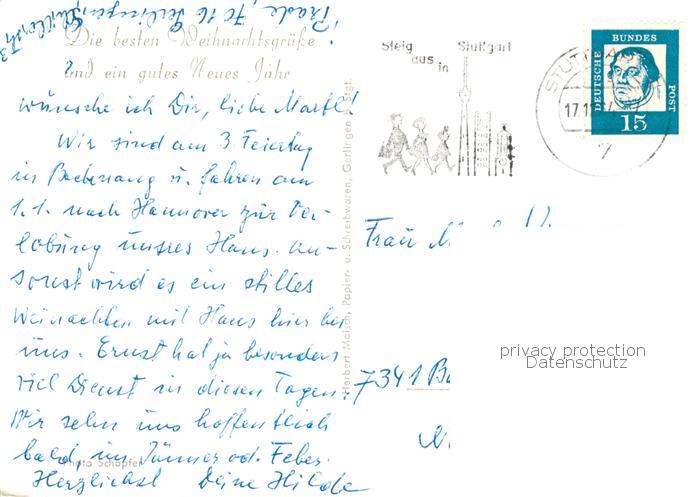 7016 Gerlingen,
Die besten Weihnachtsgrüße
und ein gutes Neues Jahr
wünsche ich Dir, liebe
Wir sind am 3 Feiertag
in Backnang u. fahren am
1.1. nach Hannover zur Ver-
lobung unsres Hans. An-
sonst wird es ein stilles
Weinachten mit Hans hier bei
uns. Ernst hat ja besonders
viel Dienst in diesen Tagen.
Wir sehn uns hoffentlich
bald, im Jänner od. Feber.
Herzlichst Deine Hilde
Photo Schöpfer
Herbert Maisch, Papier- u. Schreibwaren, Gerlingen
Steig
aus
in
Stuttgart
STUTTGART
17.12.
7
DEUTSCHE
BUNDES
POST
15
Frau M
7341
privacy protection
Datenschutz